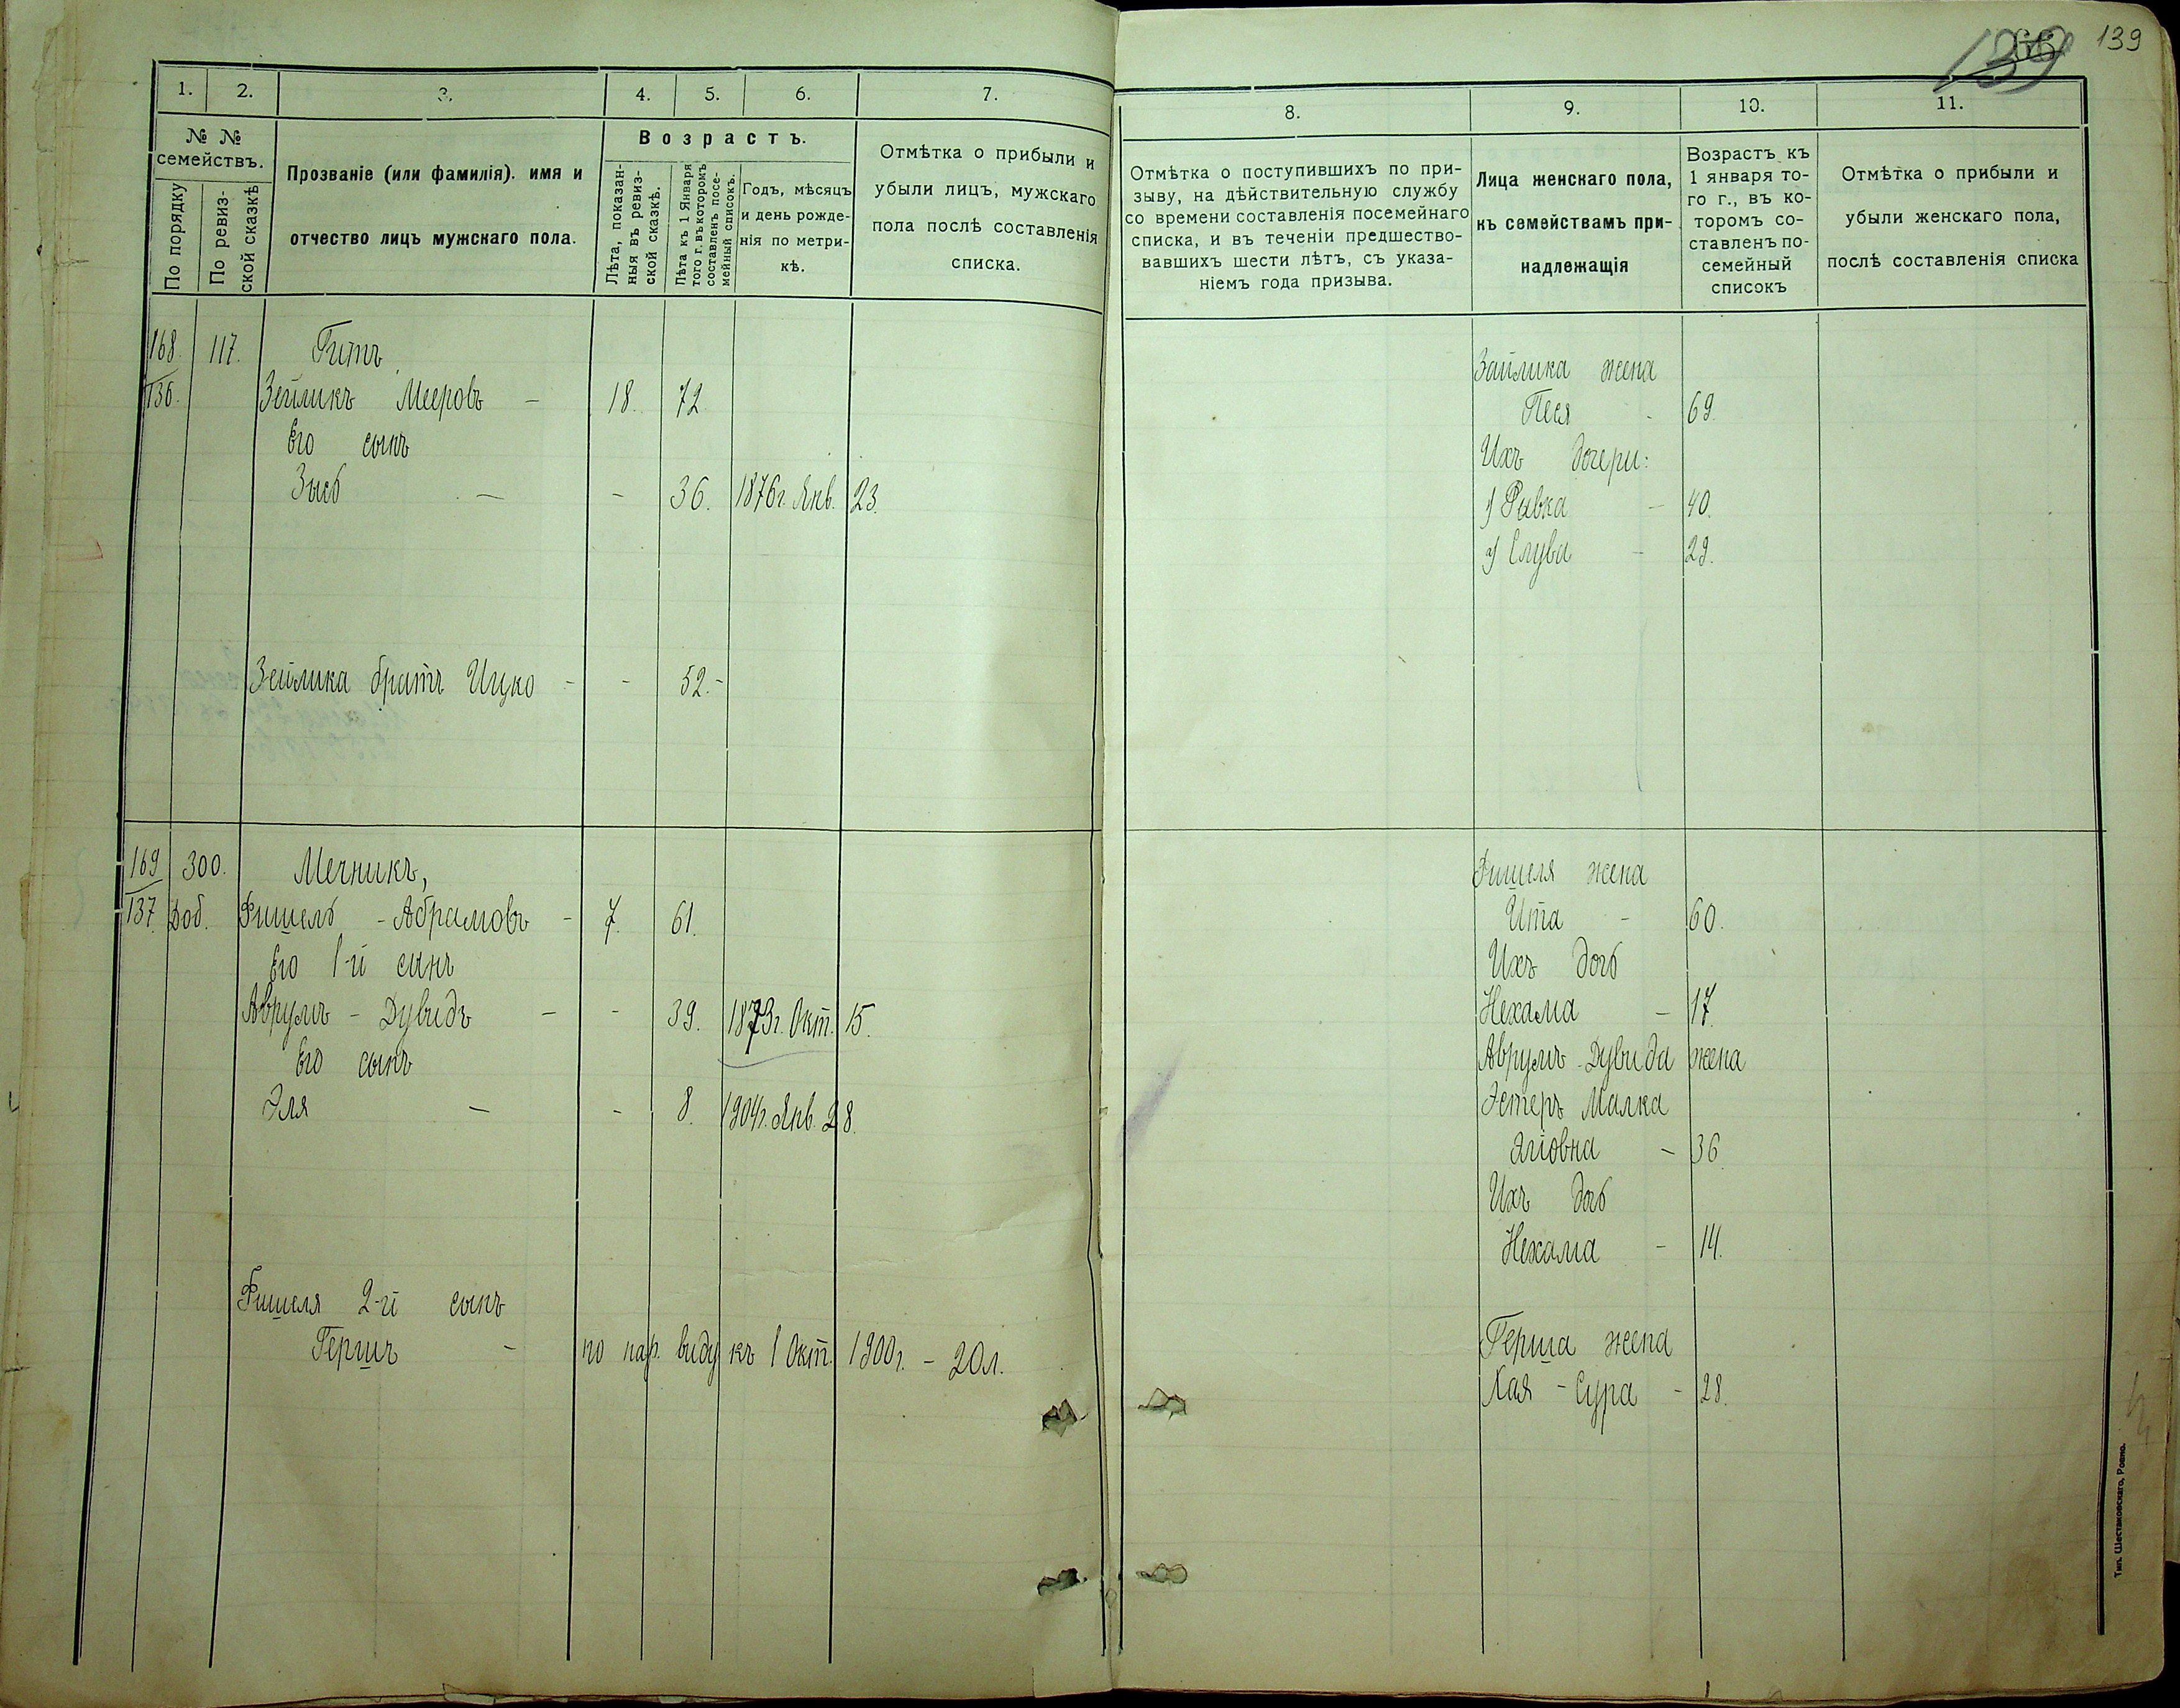 139
1. 2. 3. 4. 5. 6. 7.
№ №
семействъ.
По порядку
По ревиз-
ской сказкѣ
Прозваніе (или фамилія). имя и
отчество лицъ мужскаго пола.
Возрастъ.
Лѣта, показан-
ныя въ ревиз-
ской сказкѣ.
Лѣта къ 1 Января
того г. въ которомъ
составленъ посе-
мейный списокъ.
Годъ, мѣсяцъ
и день рожде-
нія по метри-
кѣ.
Отмѣтка о прибыли и
убыли лицъ, мужскаго
пола послѣ составленія
списка.
168. 117.
136. Зейликъ Мееровъ - 18. 72.
Его сынъ
- - 36. 1876г. Янв. 23.
Зейлика братъ Ицко - - 52.-
169 300. Мечникъ,
137. Доб. Фишель - Абрамовъ - 7. 61.
Его 1-й сынъ
Аврумъ - Дувидъ - - 39. 1873г. Окт. 15.
Его сынъ
Эля - - 8. 1904г. Янв. 28.
Фишеля 2-й сынъ
Гершъ - по нар. виду къ 1 Окт. 1900г. - 20л.
8. 9. 10. 11.
Отмѣтка о поступившихъ по при-
зыву, на дѣйствительную службу
со времени составленія посемейнаго
списка, и въ теченіи предшество-
вавшихъ шести лѣтъ, съ указа-
ніемъ года призыва.
Лица женскаго пола,
къ семействамъ при-
надлежащія
Возрастъ къ
1 января то-
го г., въ ко-
торомъ со-
ставленъ по-
семейный
списокъ
Отмѣтка о прибыли и
убыли женскаго пола,
послѣ составленія списка
Зайлика жена
Песя - 69.
Ихъ дочери:
1) Рывка - 40.
2) Слува - 29.
Фишеля жена
Ита - 60.
Ихъ дочь
Нехама - 17.
Аврумъ-Дувида жена
Эстеръ Малка
- 36.
Ихъ дочь
Нехама - 14.
Герша жена
Хая - Сура - 28.
Тип. Шестаковскаго, Ровно.